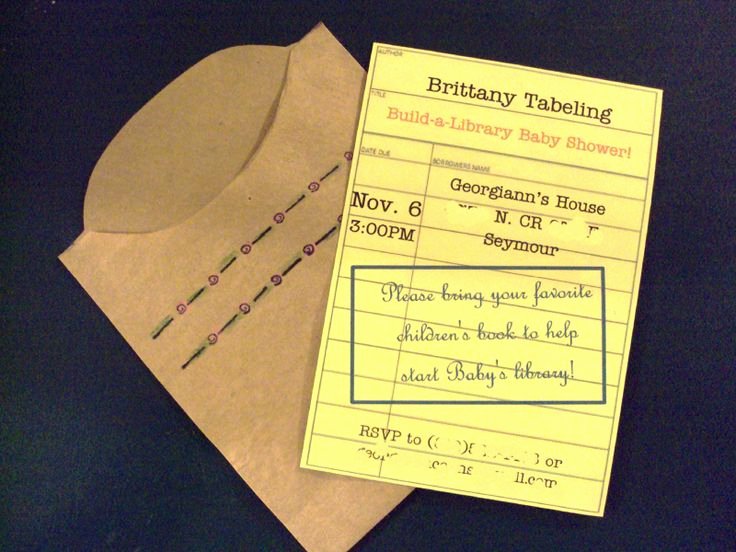 AUTHOR
Brittany Tabeling
TITLE
Build-a-Library Baby Shower!
DATE DUE
BORROWERS NAME
Nov. 6
3:00PM
Georgiann's House
N. CR
Seymour
Please bring your favorite
children's book to help
start Baby's library!
RSVP to ( or